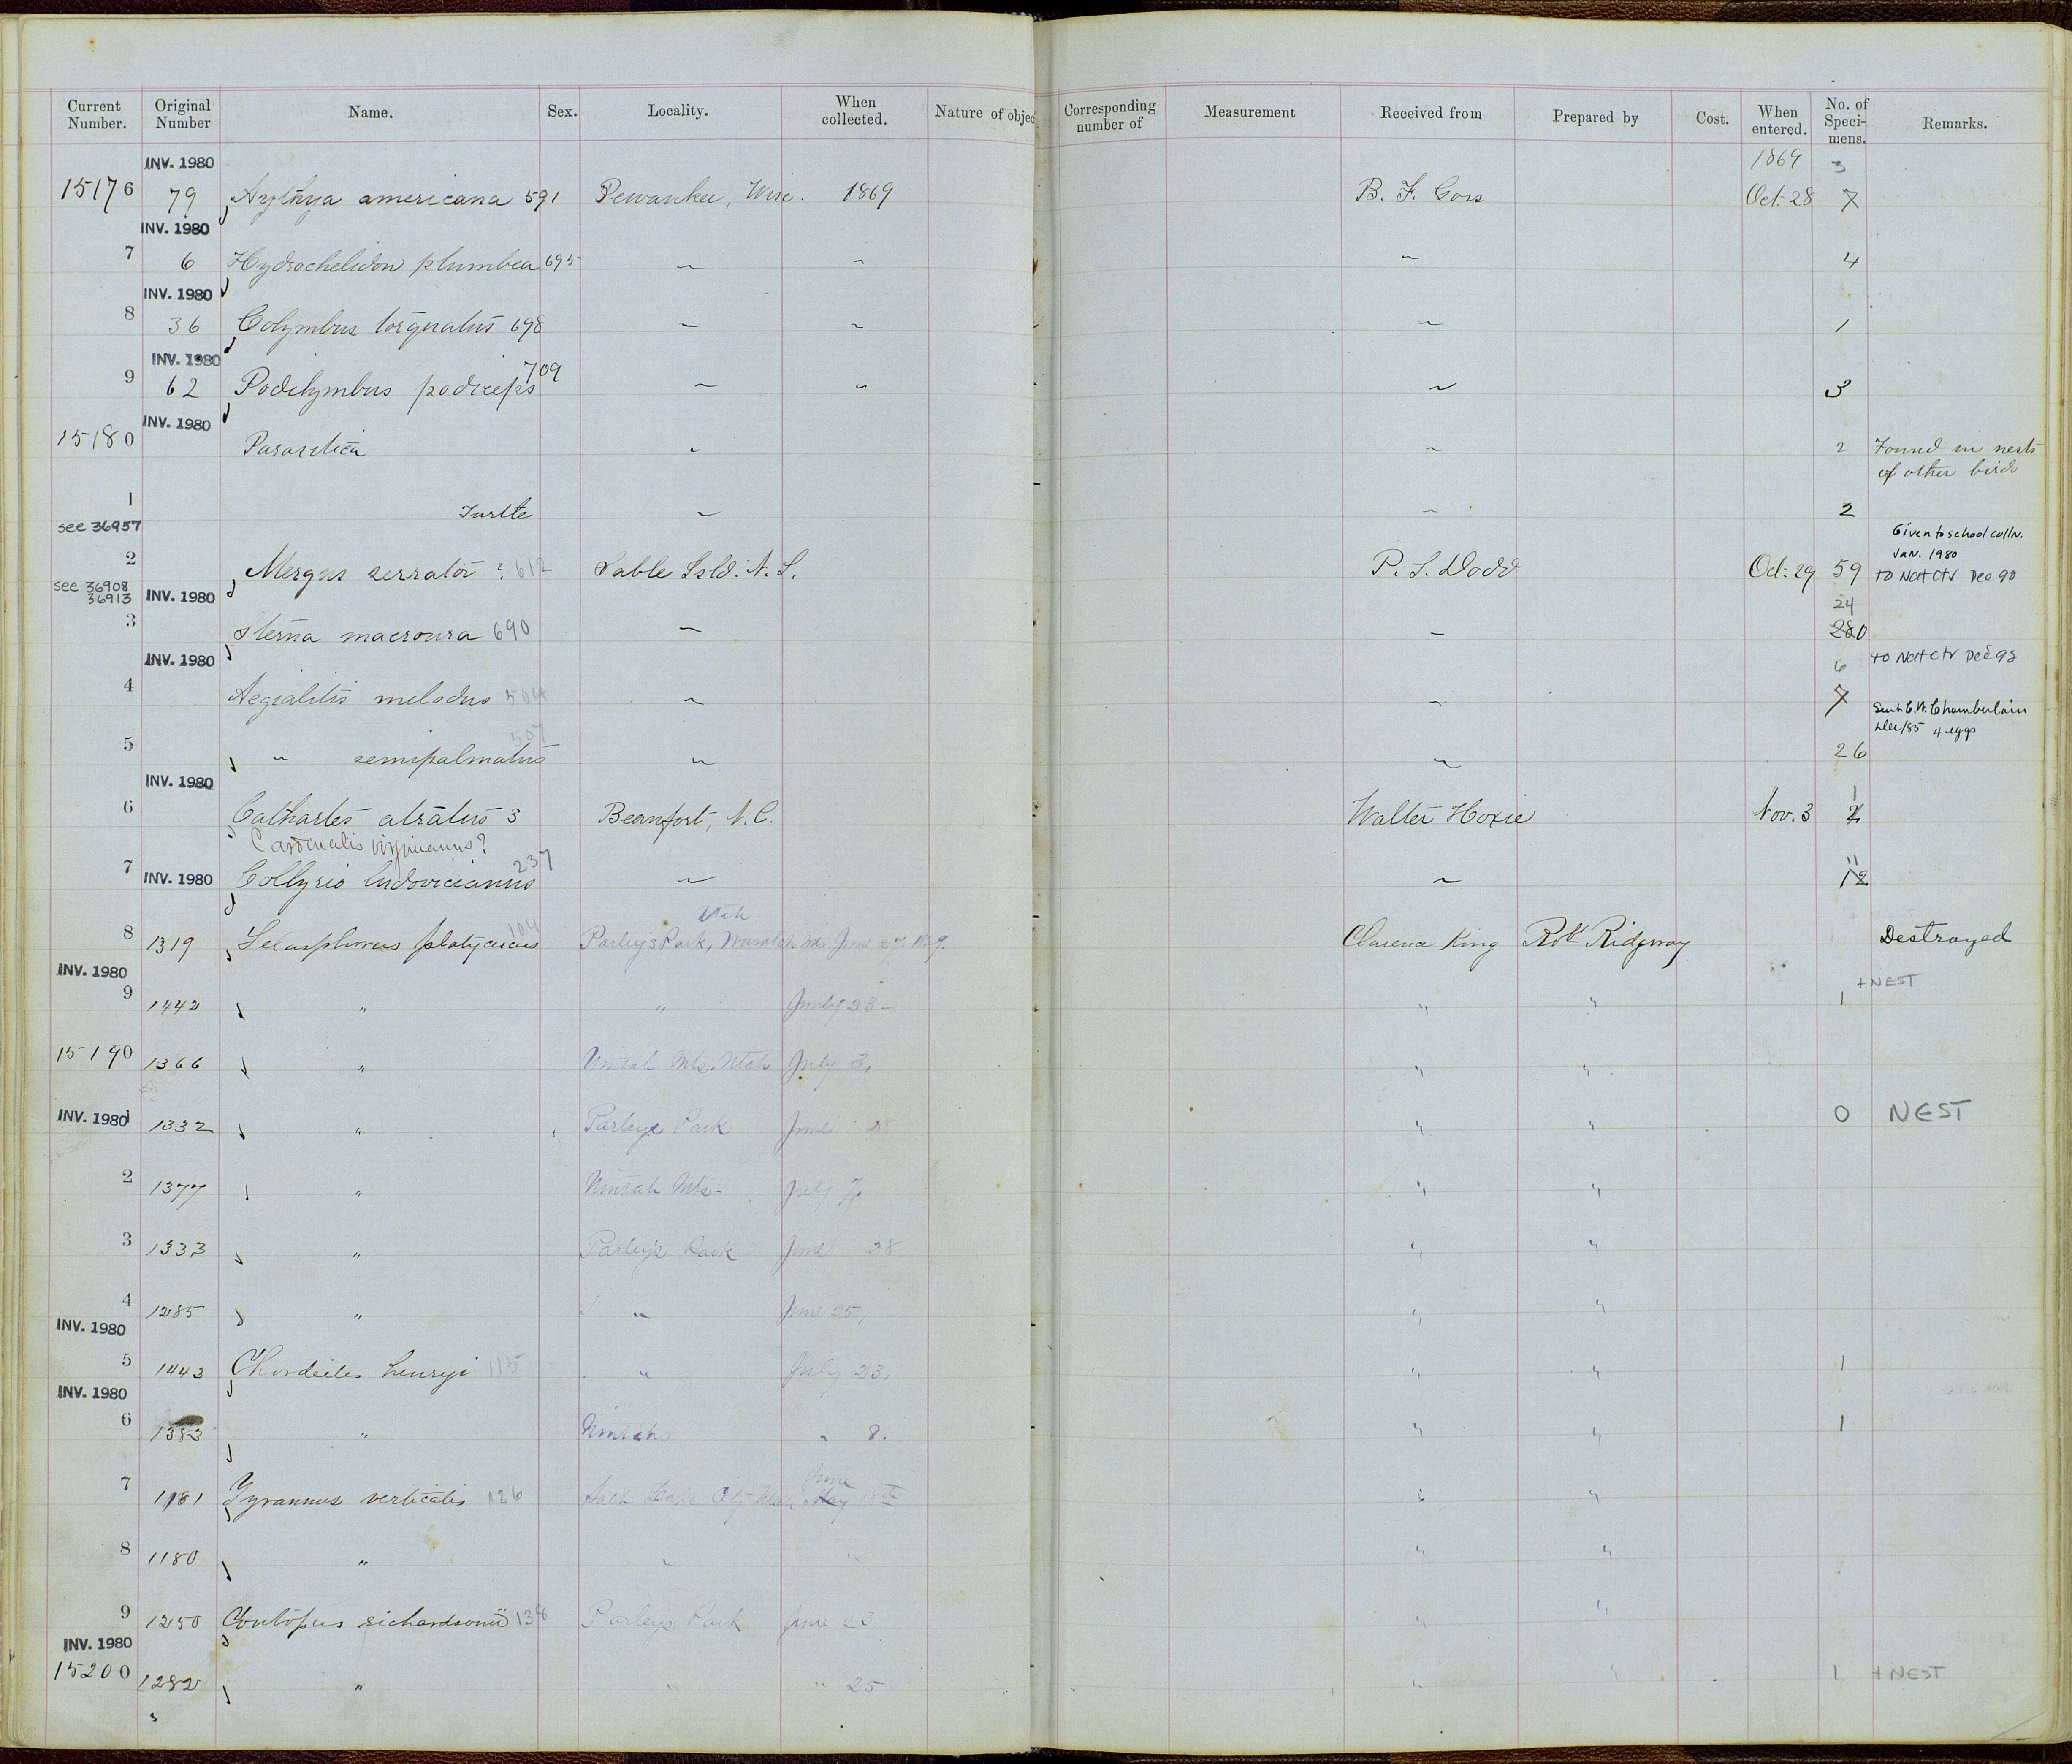 Current Number. Original Number Name. Sex. Locality. When collected. Nature of objec Corresponding number of Measurement Received from Prepared by Cost. When entered. No. of Speci-mens. Remarks.
INV. 1980 1869 3
15176 79 Aythya americana 591 Pewaukee, Wisc. 1869 B. F. Goss Oct. 28 7
INV. 1980
7 6 Hydrochelidon plumbea 695 " " " 4
INV. 1980
8 36 Colymbus torquatus 698 " " " 1
INV. 1980
9 62 Podilymbus podiceps 709 " " " 3
INV. 1980
15180 Parasitica " " 2 Found in nests
of other birds
1 Turtle " " 2
see 36957
Given to school colln.
Jan. 1980
2 Mergus serrator ? 612 Sable Isld. N. S. P. S. Dodd Oct. 29 59 to Nat Ctr Dec 90
see 36908
36913 INV. 1980
24
3 Sterna macroura 690 " " 280
INV. 1980
6 to Nat Ctr Dec 90
4 Aegialitis melodus 504 " " 7
Sent C.W. Chamberlain
Dec/85 4 eggs
507
5 " semipalmatus " " 26
INV. 1980
1
6 Cathartes atratus 3 Beaufort, N. C. Walter Hoxie Nov. 3 2
Cardinalis virginianus?
11
7 INV. 1980 Collyrio ludovicianus 237 " " 12
Utah
8 1319 Selasphorus platycercus 104 Parley's Park, Wasatch Mts. June 27, 1869. Clarence King Robt Ridgway Destroyed
INV. 1980
+ NEST
9 1442 " " July 23 " " 1
15190 1366 " Uintah Mts. Utah July 3, " "
INV. 1980 1 1332 " Parleys Park June 28 " " 0 NEST
2 1377 " Uintah Mts. July 7, " "
3 1333 " Parley's Park June 28 " "
4 1285 " " June 25, " "
INV. 1980
5 1443 Chordeiles henryi 115 " July 23, " " 1
INV. 1980
6 1383 " Uintahs " 8. " " 1
June
7 1181 Tyrannus verticalis 126 Salt Lake City Utah May 18th " "
8 1180 " " " " "
9 1250 Contopus richardsonii 138 Parley's Park June 23 " "
INV. 1980
15200 1282 " " " 25 " " 1 + NEST